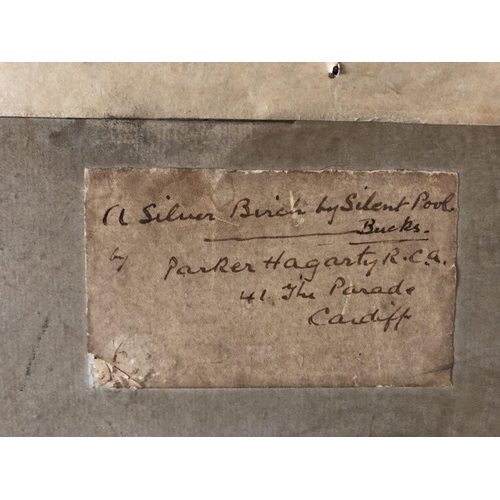 A Silver Birch by Silent Pool
Bucks.
by Parker Hagarty R.C.A.
41 The Parade
Cardiff